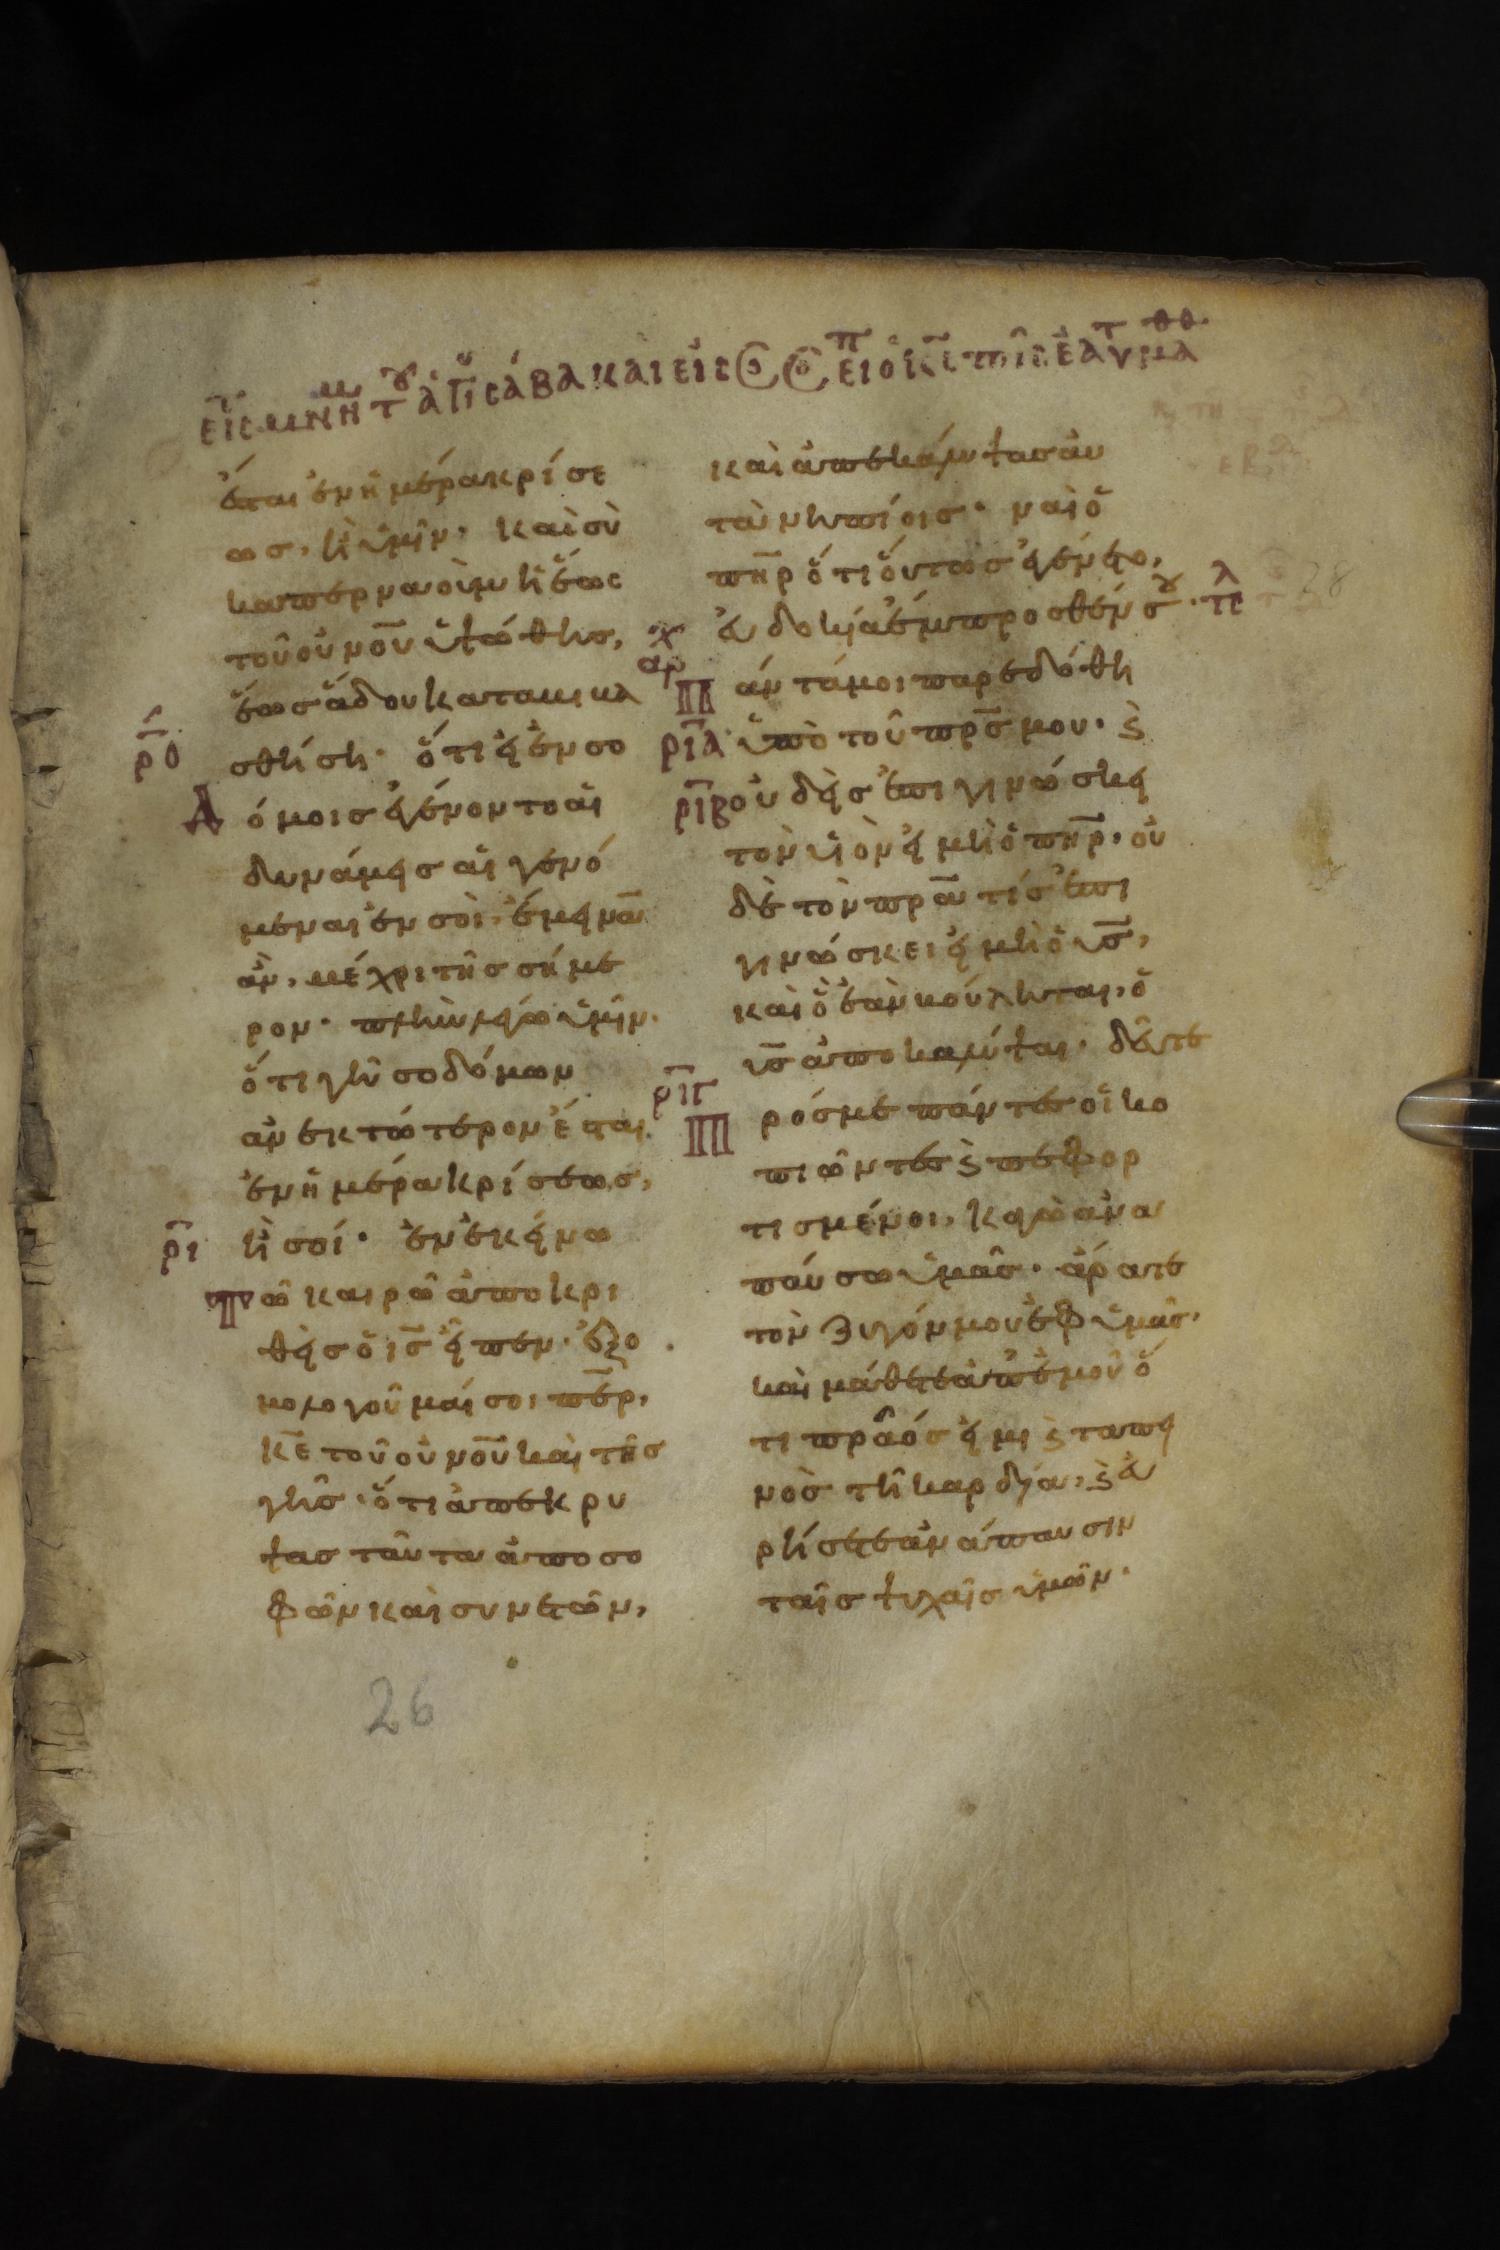 εἰς μνή τ ἁγί σάβα καὶ εἰς ὁσ εἶπ ὁ κ̅ς̅ τοῖς ἑαυτ μαθθ
ἔσται ἐν ἡμέρα κρίσε
ως, ἢ ὑμῖν· καὶ σὺ
καπερναοὺμ ἡ ἕως
τοῦ οὐ̅ν̅ο̅υ̅ ὑψωθης,
ἕως ἅδου καταβιβα
ρθ
σθήση· ὅτι εἰ ἐν σο
δόμοις ἐγένοντο αἱ
δυνάμεις αἱ γενό
μεναι ἐν σοὶ, ἔμειναν
ἂν, μέχρι τῆς σήμε
ρον· πλὴν λέγω ὑμῖν·
ὅτι γῆ σοδόμων
ἀνεκτώτερον ἔσται
ἐν ἡμέρα κρίσεως,
ρι
ἢ σοί· ἐν ἐκείνω
τῶ καιρῶ ἀποκρι
θεὶς ὁ ι̅ς̅ εἶπεν· ἐξο
μολογοῦμαί σοι π̅ε̅ρ̅,
κ̅ε̅ τοῦ οὐ̅ν̅ο̅υ̅ καὶ τῆς
γῆς· ὅτι ἀπέκρυ
ψας ταῦτα ἀπο σο
φῶν καὶ συνετῶν,
καὶ ἀπεκάλυψας αὐ
τὰ νηπίοις· ναὶ ὁ
π̅η̅ρ̅ ὅτι οὕτως ἐγένετο,
εὐδοκία ἔμπροσθέν σου· τελ
αρχ
πάντά μοι παρεδόθη
ρια
ὑπὸ τοῦ π̅ρ̅ς̅ μου· ϗ
ριβ
οὐδεὶς ἐπιγινώσκει
τὸν υἱὸν εἰ μὴ ὁ π̅η̅ρ̅, οὐ
δὲ τὸν π̅ρ̅α̅ τίς ἐπι
γινώσκει εἰ μὴ ὁ υ̅ς̅,
καὶ ὃ ἐὰν βούληται, ὁ
υ̅ς̅ ἀποκαλύψαι· δεῦτε
ριγ
πρός με πάντες οἱ κο
πιῶντες ϗ πεφορ
τισμένοι, καγὼ ἀνα
παύσω ὑμᾶς· ἄρατε
τὸν ζυγόν μου ἐφ ὑμᾶς,
καὶ μάθετε ἀπ ἐμοῦ ὅ
τι πρᾶός εἰμι ϗ ταπει
νὸς τῆ καρδία, ϗ εὑ
ρήσετε ἀνάπαυσιν
ταῖς ψυχαῖς ὑμῶν·
28
26